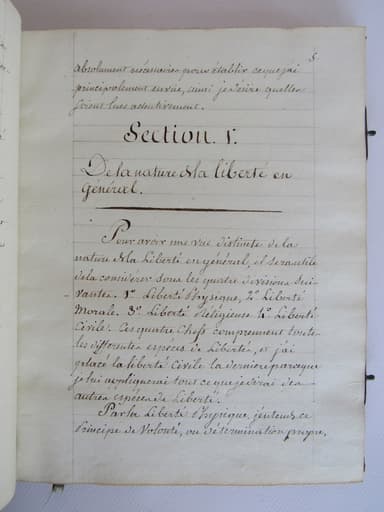 5
absolument nécessaires pour établir ce que j'ai
principalement en vue, aussi je désire qu'elles
soient lues attentivement.
Section. 1e.
De la nature & la liberté en
général.
Pour avoir une vue distincte de la
nature & la Liberté en général, il sera utile
de la considérer sous les quatre divisions Sui-
vantes. 1º Liberté Physique, 2º Liberté
Morale. 3º Liberté Réligieuse 4º Liberté
Civile. Ces quatre Chefs comprennent toutes
les différentes espèces de Liberté, et j'ai
placé la liberté Civile la derniere parceque
je lui appliquerai tous ce que je dirai des
autres espèces de Liberté.
Par la Liberté Physique, j'entends ce
Principe de Volonté, ou détermination propre,